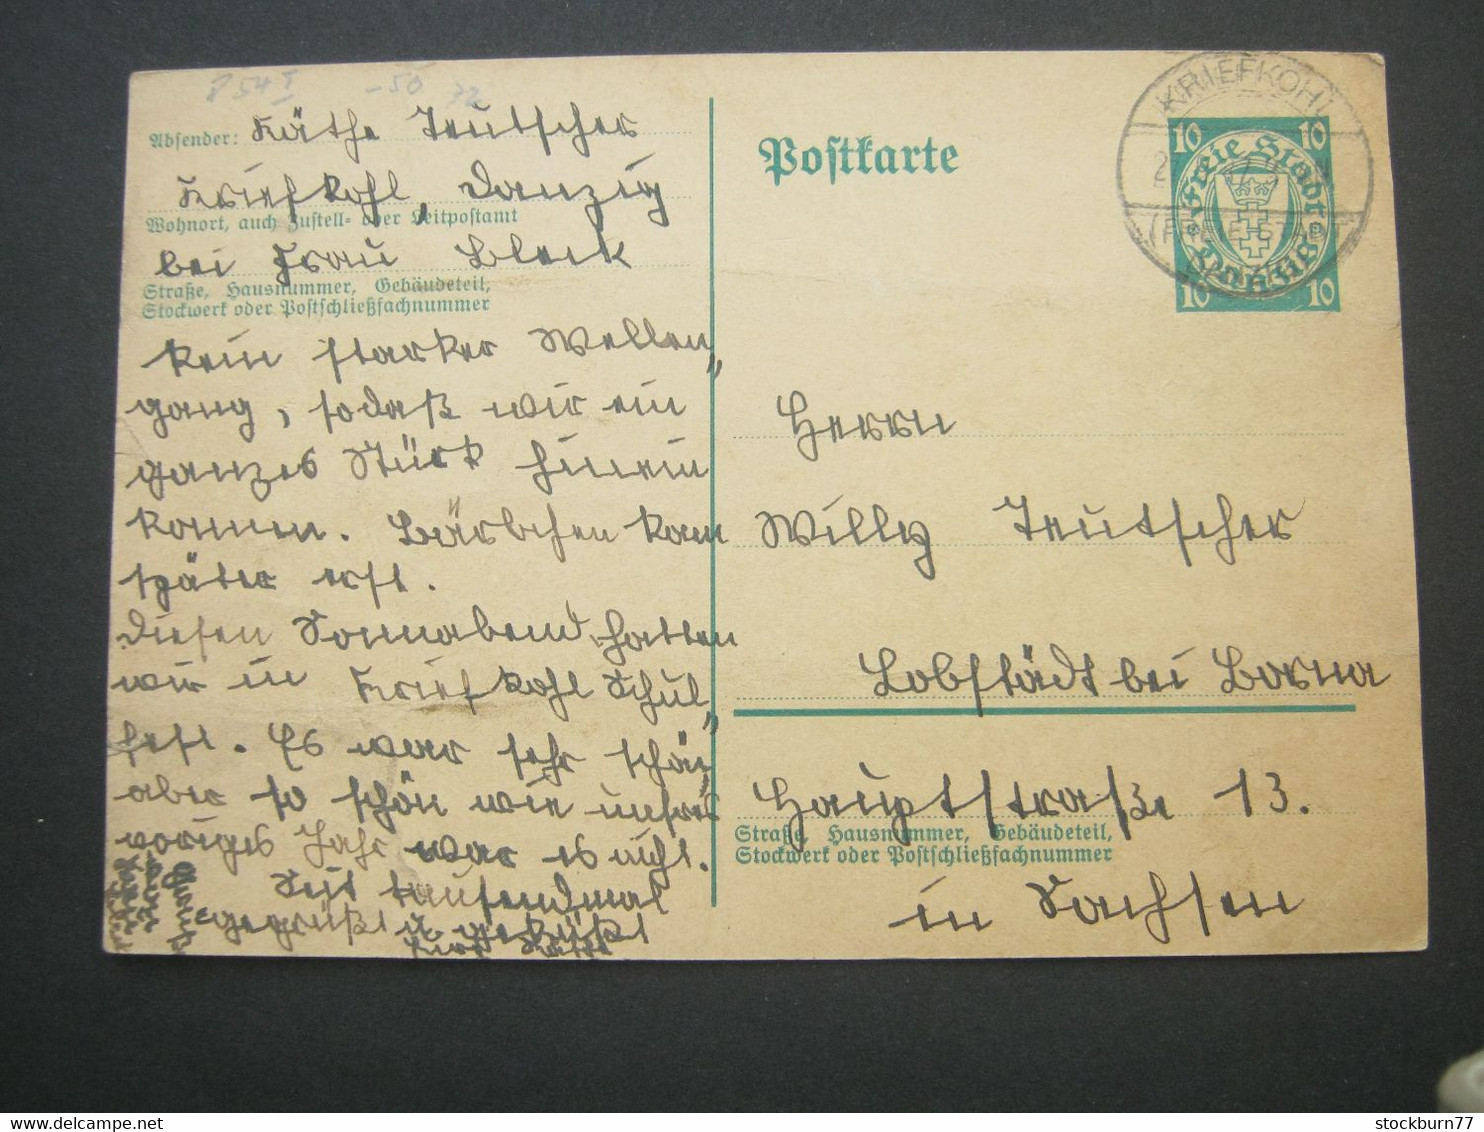 8 54 I -50 72
Absender: Käthe Teutscher
Kriefkohl, Danzig
Wohnort, auch Zustell- oder Leitpostamt
bei Frau Bleck
Straße, Hausnummer, Gebäudeteil,
Stockwerk oder Postschließfachnummer
kein starker Wellen„
gang, sodaß wir ein
ganzes Stück hinein
konnen. Bärbchen kam
später erst.
Diesen Sonnabend hatten
wir in Kriefkohl Schul„
fest. Es war sehr schön
aber so schön wie unsres
voriges Jahr war es nicht.
Seit tausendmal
gegrüßt u. geküßt
Postkarte
KRIEFKOHL
(FREIE STADT
10 10
Freie Stadt
Danzig
10 10
Herrn
Willy Teutscher
Lobstädt bei Borna
Hauptstraße 13.
Straße, Hausnummer, Gebäudeteil,
Stockwerk oder Postschließfachnummer
in Sachsen
stockburn77